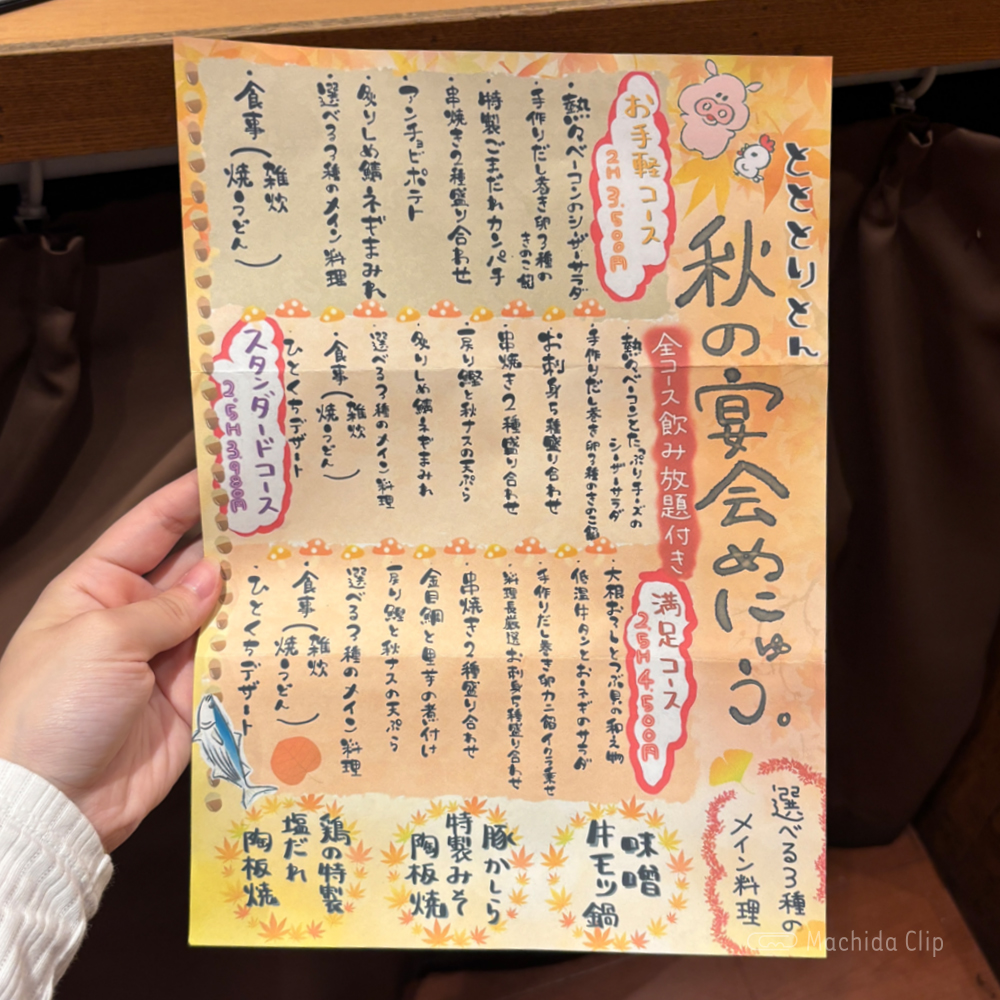 ととりとん
秋の宴会めにゅう。
全コース飲み放題付き
お手軽コース
2H 3.500円
・熱々ベーコンのシーザーサラダ
・手作りだし巻き卵3種の
きのこ餡
・特製ごまだれカンパチ
・串焼きの2種盛り合わせ
・アンチョビポテト
・炙りしめ鯖ネギまみれ
・選べる3種のメイン料理
・食事(雑炊
焼うどん)
スタンダードコース
2.5H 3.980円
・熱々ベーコンとたっぷりチーズの
シーザーサラダ
・手作りだし巻き卵3種のきのこ餡
・お刺身5種盛り合わせ
・串焼き2種盛り合わせ
・戻り鰹と秋ナスの天ぷら
・炙りしめ鯖ネギまみれ
・選べる3種のメイン料理
・食事(雑炊
焼うどん)
・ひとくちデザート
満足コース
2.5H 4.500円
・大根おろしとつぶ貝の和え物
・低温牛タンとおネギのサラダ
・手作りだし巻き卵カニ餡イクラ乗せ
・料理長厳選お刺身5種盛り合わせ
・串焼き2種盛り合わせ
・金目鯛と里芋の煮付け
・戻り鰹と秋ナスの天ぷら
・選べる3種のメイン料理
・食事(雑炊
焼うどん)
・ひとくちデザート
選べる3種の
メイン料理
味噌
牛モツ鍋
豚かしら
特製みそ
陶板焼
鶏の特製
塩だれ
陶板焼
Machida Clip